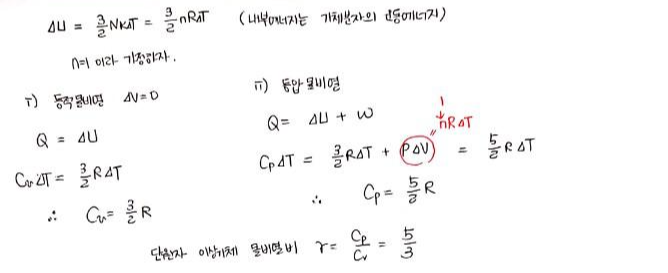 ΔU = 3/2 NKΔT = 3/2 nRΔT (내부에너지는 기체분자의 운동에너지)
n=1 이라 가정하자.
i) 등적몰비열 ΔV=0
Q = ΔU
CvΔT = 3/2 RΔT
∴ Cv = 3/2 R
ii) 등압 몰비열
Q = ΔU + W
1
↓
nRΔT
CpΔT = 3/2 RΔT + PΔV = 5/2 RΔT
∴ Cp = 5/2 R
단원자 이상기체 몰비열비 r = Cp/Cv = 5/3